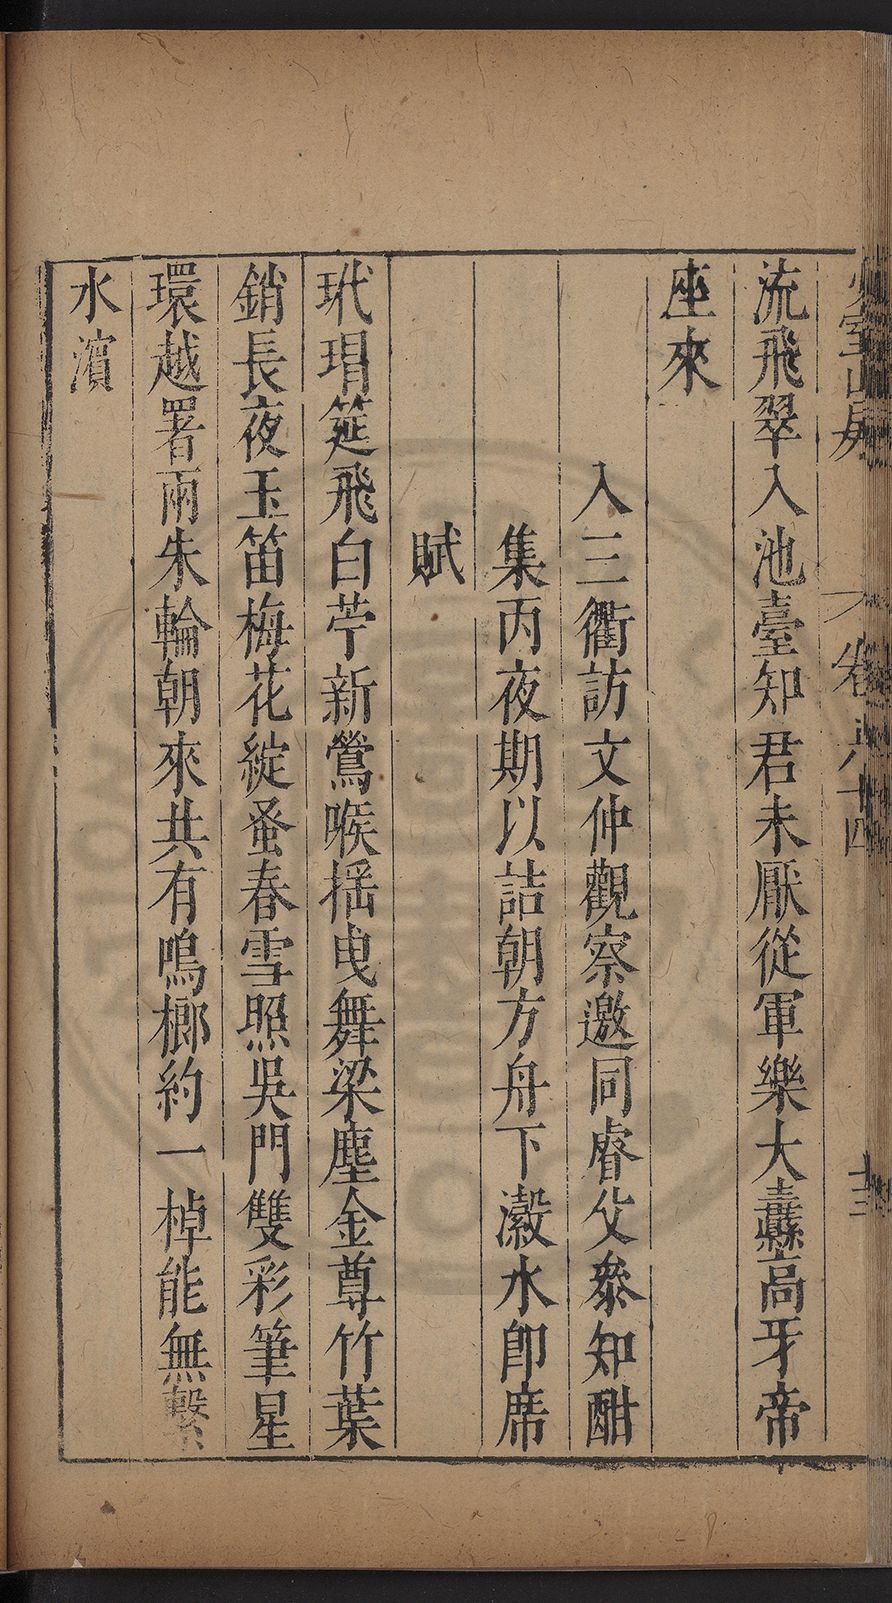 流飛翠入池臺知君未厭從軍樂大纛高牙帝
座來
入三衢訪文仲觀察邀同睿父叅知酣
集丙夜期以詰朝方舟下瀔水卽席
賦
玳瑁筵飛白苧新鶯喉揺曳舞梁塵金尊竹葉
銷長夜玉笛梅花綻蚤春雪照吳門雙彩筆星
環越署兩朱輪朝來共有鳴榔約一棹能無繫
水濱